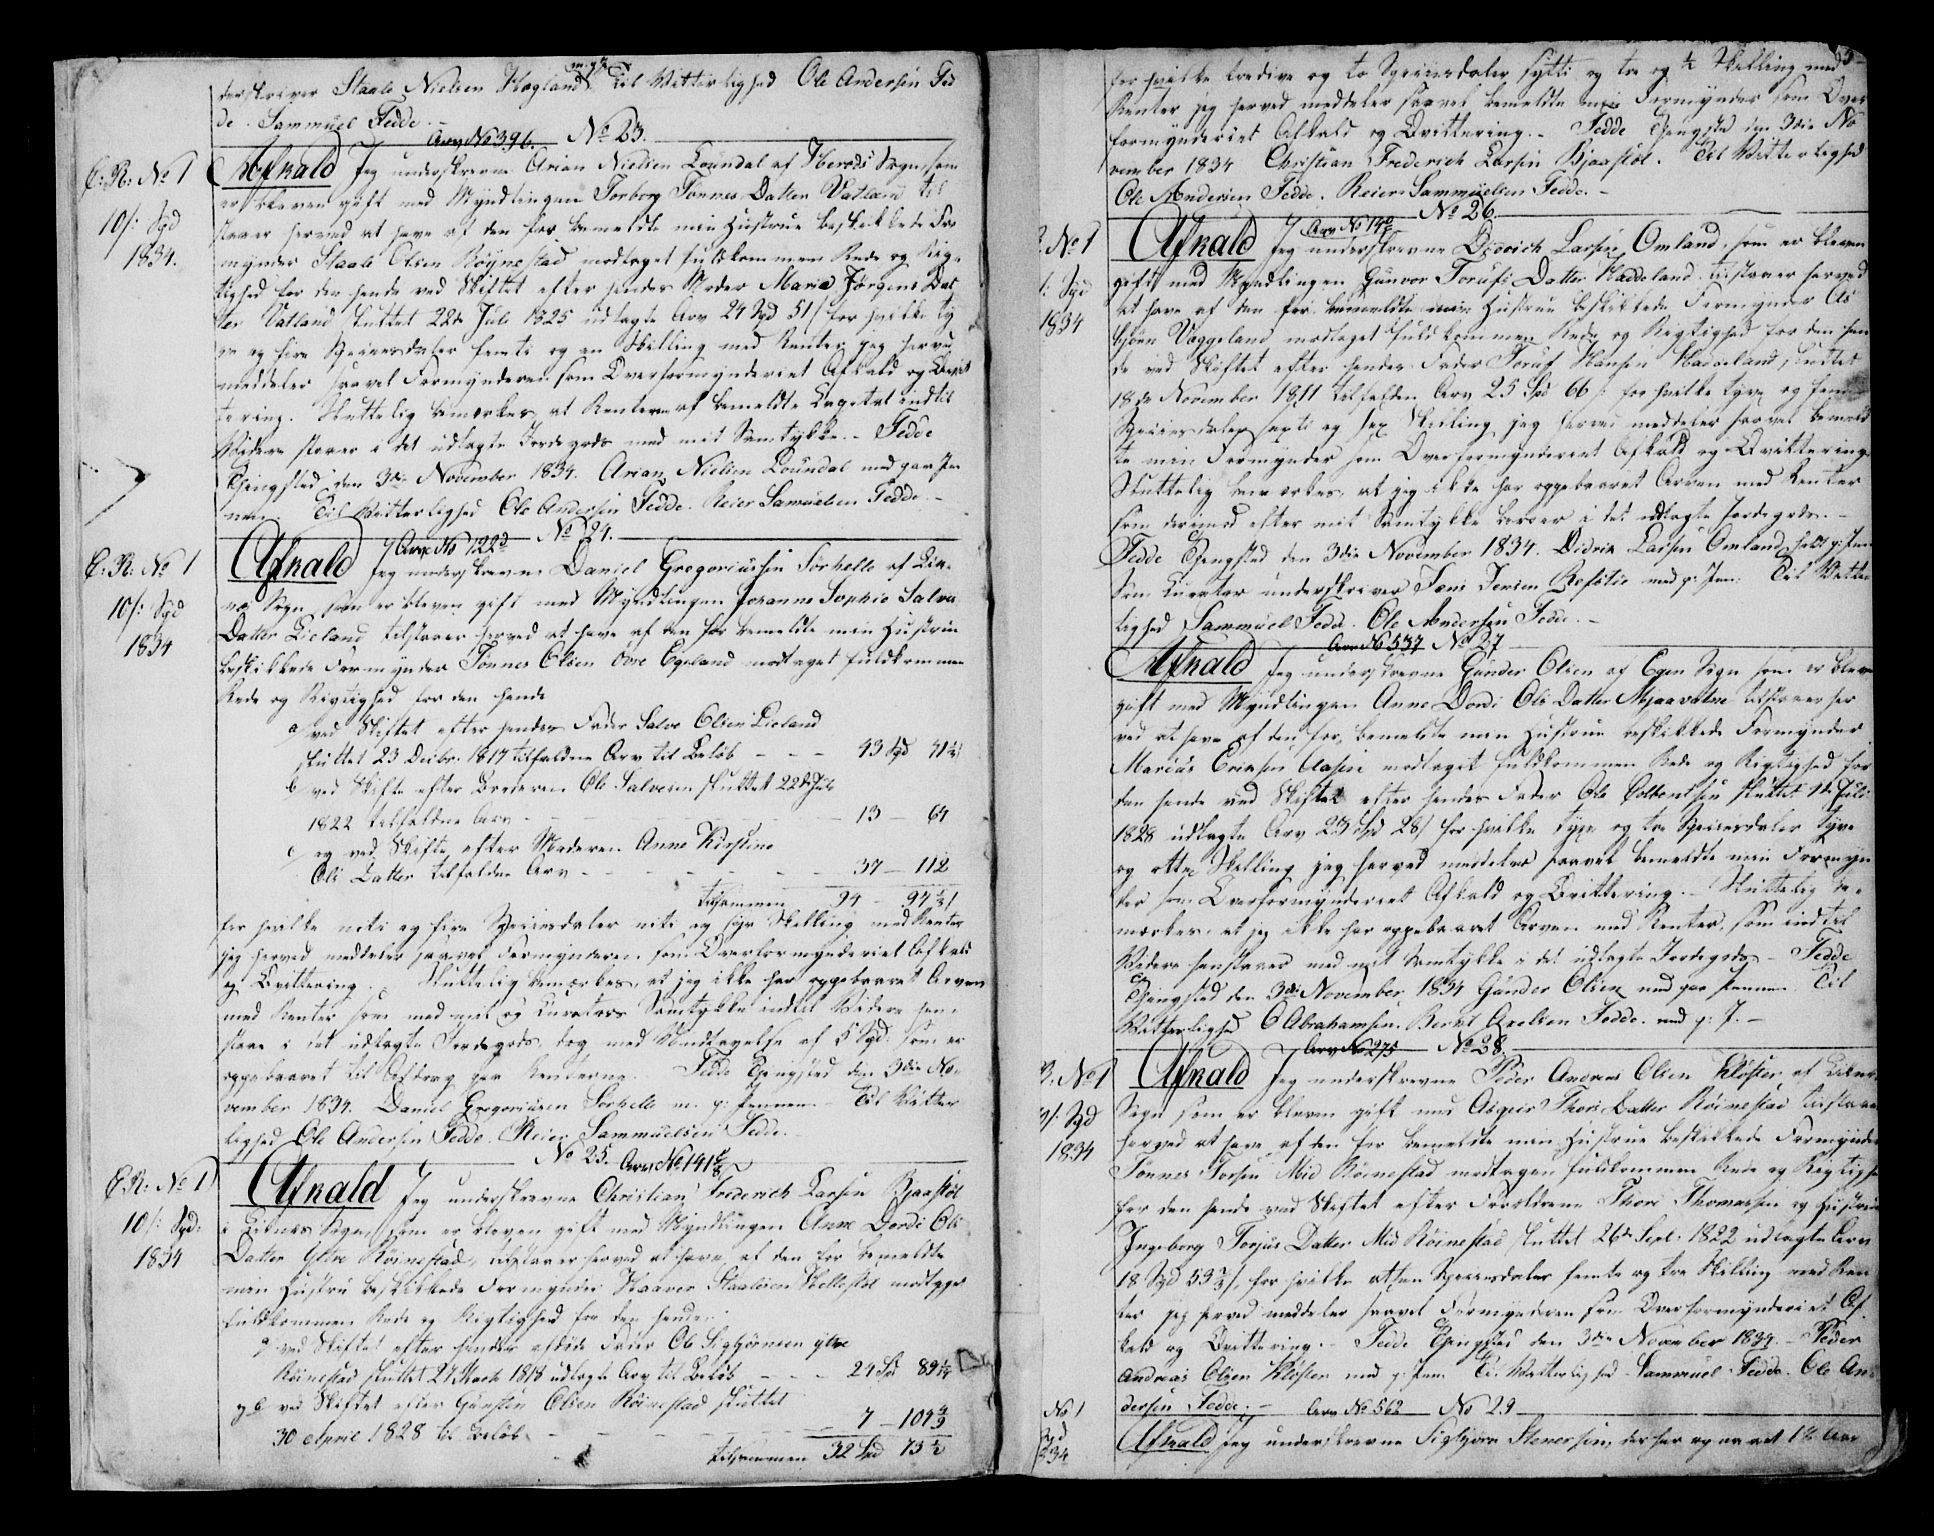 derskriver Staale Nielsen Høgland m. g. P. Til Vitterlighed Ole Andersen Fed
de. Sammuel Fedde.
Arv No 396. No 23.
E: R: No 1
10/: Spd
1834.
Afkald Jeg underskrevne Arian Nielsen Loundal af Herods Sogn, som
er bleven gift med Myndlingen Torborg Tønnes Datter Vatland til
staaer herved at have af den for bemeldte min Hustrue beskikkede For
mynder Staale Olsen Røynestad modtaget fuldkommen Rede og Rig-
tighed for den hende ved Skiftet efter hendes Moder Maria Jørgens Dat
ter Vatland sluttet 22de Juli 1825 udlagte Arv 24 Spd 51/ for hvilke ty
ve og fire Speciesdaler femti og en Skilling med Renter jeg herved
meddeler saavel Formynderen som Overformynderiet Afkald og Qvit
tering. Sluttelig bemærkes, at Renterne af bemeldte Capital indtil
Videre staaer i det udlagte Jordegods med mit Samtykke. - Fedde
Thingsted den 3die November 1834. Arian Nielsen Loundal med paa Pen
nen. Til Vitterlighed Ole Andersen Fedde. Reier Samuelsen Fedde. -
Arv No 122d No 24.
E: R: No 1
10/: Spd
1834
Afkald Jeg underskrevne Daniel Gregoriussen Sørhelle af Lik-
næs Sogn som er bleven gift med Myndlingen Johanne Sophie Salve
Datter Lieland tilstaaer herved at have af den for bemeldte min Hustrue
beskikkede Formynder Tønnes Olsen Øvre Egeland modtaget fuldkommen
Rede og Rigtighed for den hende
a/ ved Skiftet efter hendes Fader Salve Olsen Lieland
sluttet 23 Decbr. 1817 tilfaldne Arv til Beløb - - - 43 Spd 41½
b ved Skifte efter Broderen Ole Salvesen sluttet 22de Juli
1822 tilfaldne Arv - - - 13 - 64
c/ og ved Skifte efter Moderen Anne Kirstine
Ols Datter tilfaldne Arv - - - 37 - 112
tilsammen 94 - 97½/
for hvilke niti og fire Speciesdaler niti og syv Skilling med Renter
jeg herved meddeler saavel Formynderen som Overformynderiet Afkald
og Qvittering. Sluttelig bemærkes, at jeg ikke har oppebaaret Arven
med Renter som med mit og Kurators Samtykke indtil Videre hen-
staae i det udlagte Jordegods, dog med Undtagelse af 5 Spd: som er
oppebaaret til Afdrag paa Renterne. Fedde Thingsted den 3die No-
vember 1834. Daniel Gregoriusen Sørhelle m. p: Pennen. - Til Vitter
lighed Ole Andersen Fedde. Reier Sammuelsen Fedde. -
No 25. Arv No 141 c/8
E: R: No 1
10/: Spd:
1834
Afkald Jeg underskrevne Christian Frederich Larsen Bjaastøl
i Liknæs Sogn, som er bleven gift med Myndlingen Anne Dordi Ols
Datter Ytre Røinestad, tilstaaer herved at have af den for bemeldte
min Hustru beskikkede Formynder Haaver Staalesen Skellestøl modtaget
fuldkommen Rede og Rigtighed for den hende:
a/ ved Skiftet efter hendes afdøde Fader Ole Sigbjørnsen ytre
Røinestad sluttet 27 Mach 1818 udlagte Arv til Beløb - - - 24 Sd 89¼
og b ved Skiftet efter Gunsten Olsen Røinestad sluttet
30 April 1828 til Beløb - - - 7 - 104
tilsammen 32 Spd 73½
for hvilke tredive og to Speciesdaler sytti og tre og ½ Skilling med
Renter jeg herved meddeler saavel bemeldte min Formynder som Over
formynderiet Afkald og Qvittering. - Fedde Thingsted den 3die No
vember 1834 Christian Frederich Larsen Bjaastøl. Til Vitterlighed
Ole Andersen Fedde. Reier Sammuelsen Fedde. -
Arv No 140 No 26.
No 1
Spd
1834
Afkald Jeg underskrevne Diderich Larsen Omland, som er bleven
gift med Myndlingen Gunvor Torufs Datter Haddeland, tilstaaer herved
at have af den for bemeldte min Hustrue beskikkede Formynder As
bjørn Væggeland modtaget fuldkommen Rede og Rigtighed for den hen
de ved Skiftet efter hendes Fader Toruf Hansen Haddeland, sluttet
18de November 1811 tilfalden Arv 25 Spd 66/: for hvilke tyve og fem
Speciesdaler sexti og sex Skilling jeg herved meddeler saavel bemeld
te min Formynder som Overformynderiet Afkald og Qvittering.
Sluttelig bemærkes, at jeg ikke har oppebaaret Arven med Renter
som derimod efter mit Samtykke beroer i det udlagte Jordegods. -
Fedde Thingsted den 3die November 1834. Didrik Larsen Omland, holdt p: Pen
Som Curator underskriver Tønes Jensen Refstie med p: Pen: Til Vitter
lighed Sammuel Fedde. Ole Andersen Fedde. -
Arv No 537 No 27
Afkald Jeg underskrevne Gunder Olsen af Egen Sogn som er bleven
gift med Myndlingen Anne Dordi Ols Datter Mjaavatne tilstaaer her
ved at have af den for bemeldte min Hustrue beskikkede Formynder
Marius Eriksen Aasen modtaget fuldkommen Rede og Rigtighed for
den hende ved Skiftet efter hendes Fader Ole Colbentsen sluttet 1de Juli
1828 udlagte Arv 23 Spd 28/ for hvilke tyve og tre Speciesdaler tyve
og otte Skilling jeg herved meddeler saavel bemeldte min Formyn
der som Overformynderiet Afkald og Qvittering. - Sluttelig be-
mærkes, at jeg ikke har oppebaaret Arven med Renter, som indtil
Videre henstaaer med mit Samtykke i det udlagte Jordegods. - Fedde
Thingsted den 3die November 1834 Gunder Olsen med paa Pennen. Til
Vitterlighed O Abrahamsen. Bernt Axelsen Fedde. med p: P. -
Arv No 275 No 28.
R. No 1
10/: Spd
1834
Afkald Jeg underskrevne Peder Andreas Olsen Kloster af Liknes
Sogn som er bleven gift med Asgier Thors Datter Røinestad tilstaaer
herved at have af den for bemeldte min Hustrue beskikkede Formynder
Tønnes Torsen Mid Røinestad modtagen fuldkommen Rede og Rigtighed
for den hende ved Skiftet efter Forældrene Thore Thomassen og Hustrue
Ingeborg Torjus Datter Mid Røinestad sluttet 26de Sept. 1822 udlagte Arv
18 Spd 53/, for hvilke atten Speciesdaler femte og tre Skilling med Ren
ter jeg herved meddeler saavel Formynderen som Overformynderiet Af
kald og Qvittering. - Fedde Thingsted den 3die November 1834. - Peder
Andreas Olsen Kloster med p: Pen. Til Vitterlighed Sammuel Fedde. Ole An-
dersen Fedde. -
Arv No 562 No 29
No 1
Spd
1834
Afkald Jeg underskrevne Sigbjørn Stenersen, der har opnaaet 18 Aar